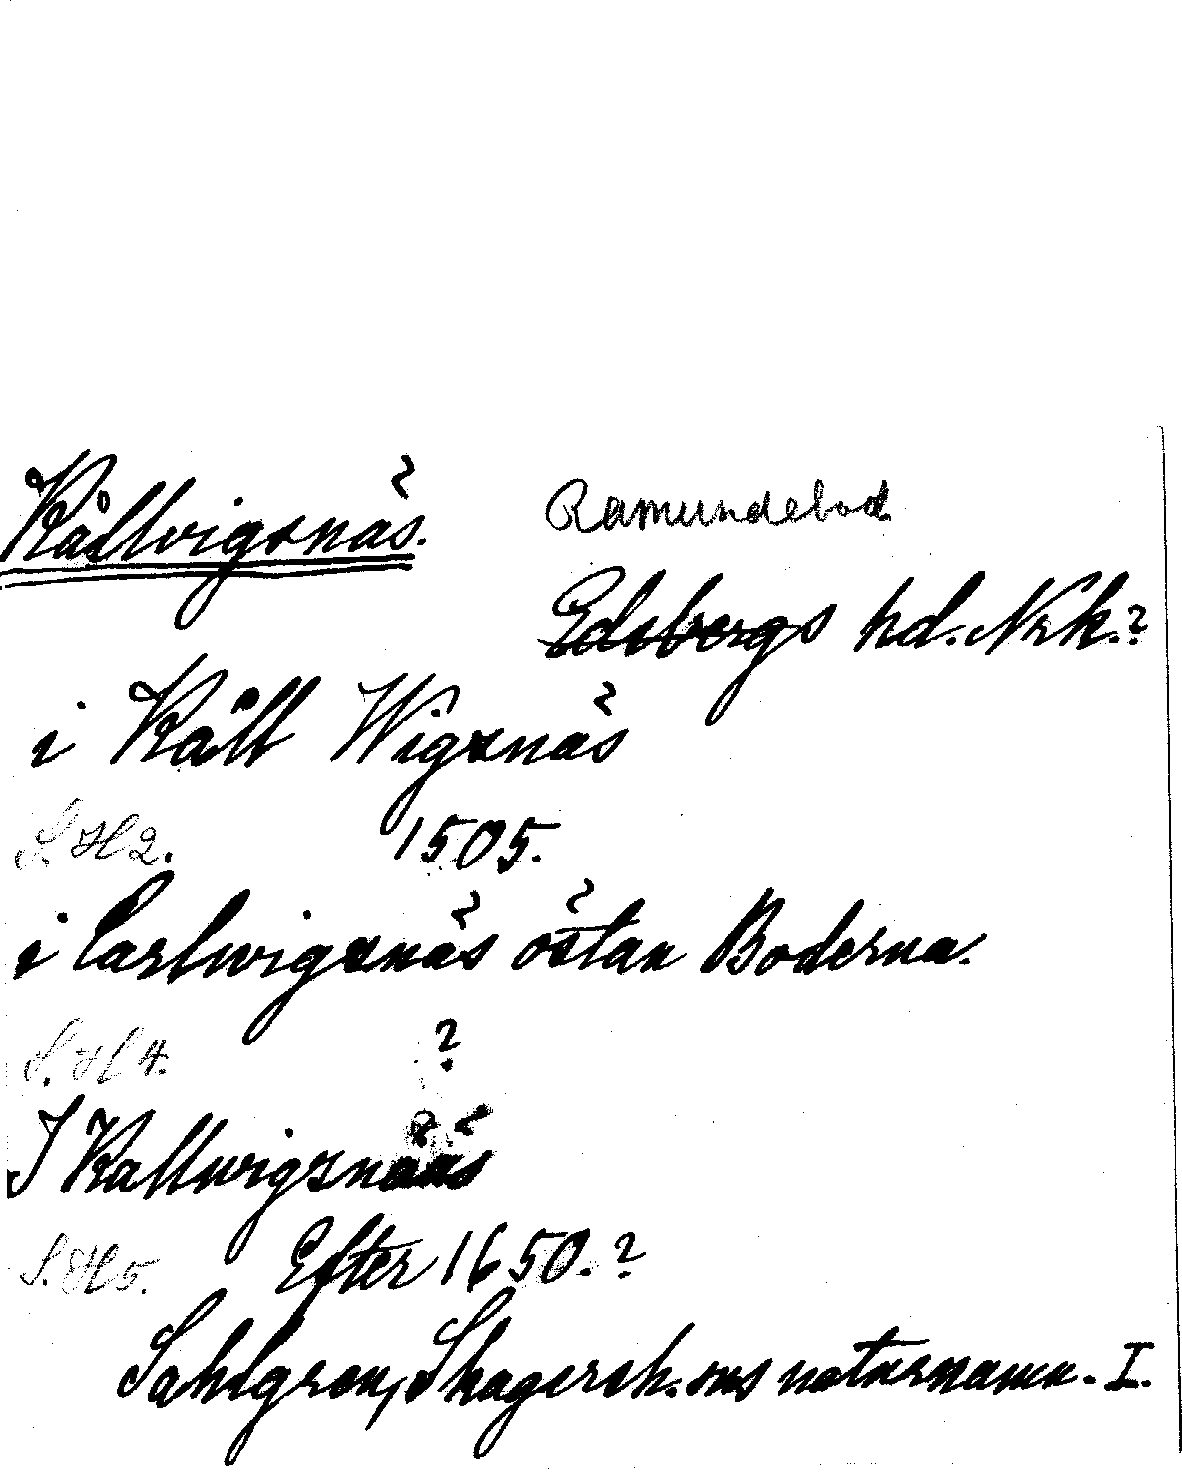 Kållvigsnäs. Ramundebod
Edsbergs hd. Nrk.?
i Kåll Wigsnäs
S.H2. 1505.
i Carlwigsnäs östan Boderna.
S.H4. ?
I Kallwigsnääs
S.H5. Efter 1650.?
Sahlgren, Skagersh.sns naturnamn. I.